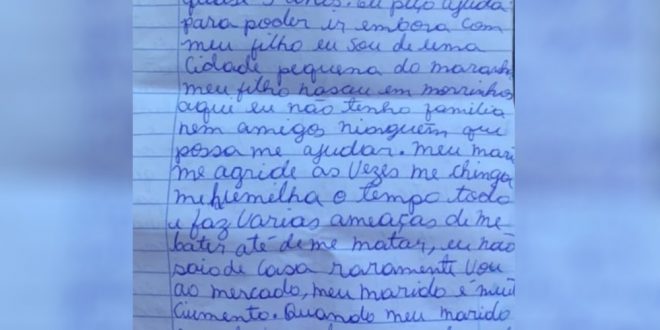 quase 3 anos. eu peço ajuda
para poder ir embora com
meu filho eu sou de uma
cidade pequena do maranh
meu filho nasau em morrinhos
aqui eu não tenho família
nem amigos ninguém que
possa me ajudar. meu mari
me agride as vezes me chinga
me humilha o tempo todo
e faz varias ameaças de me
bater até de me matar, eu não
saio de casa raramente vou
ao mercado, meu marido é mui
ciumento. Quando meu marido